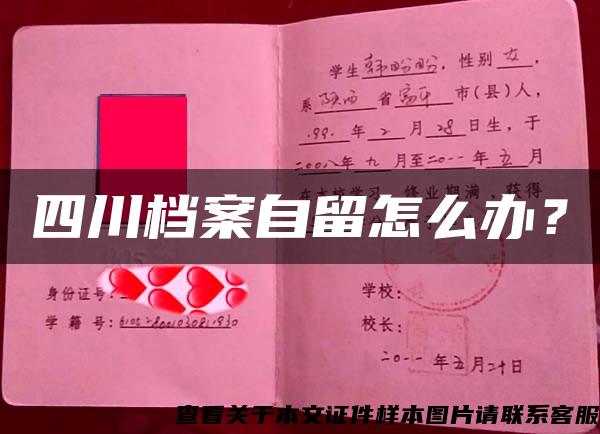 学生韩盼盼，性别女，
系陕西省富平市(县)人，
年2月28日生，于
二00八年九月至二0一一年五月
修业期满，获得
四川档案自留怎么办？
身份证号:
学籍号:
学校：
校长：
二0一一年五月二十日
查看关于本文证件样本图片请联系客服